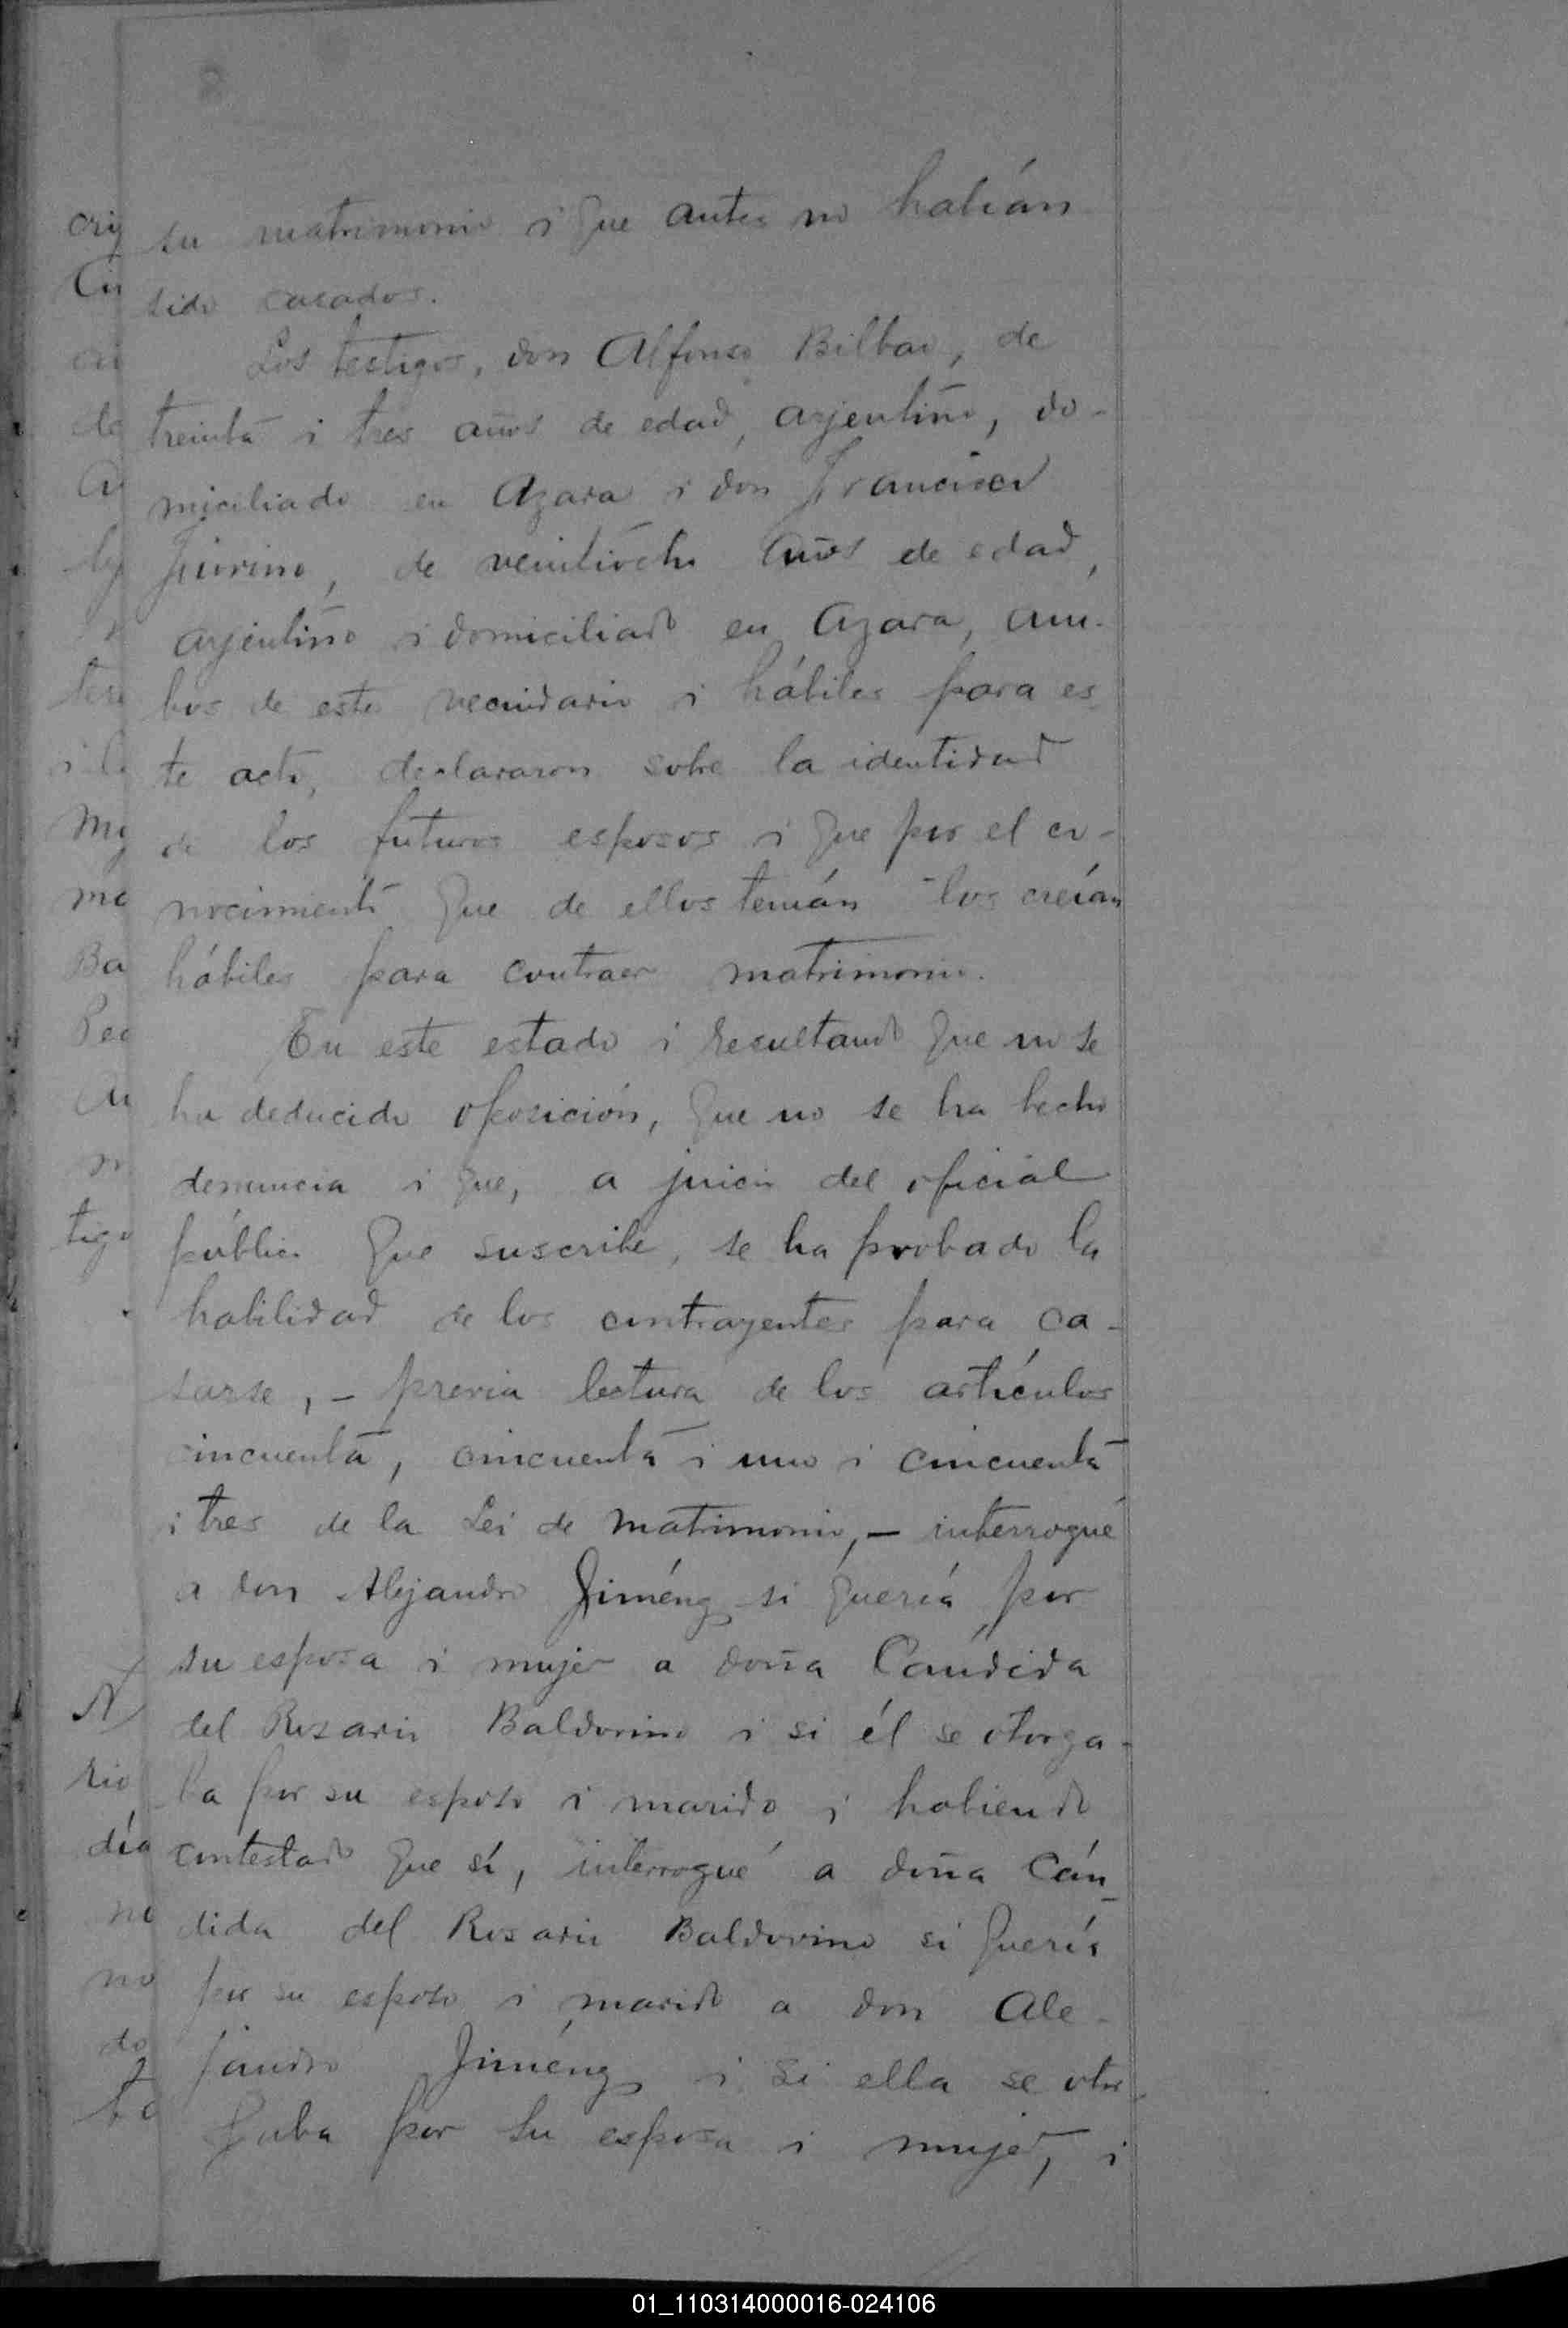 su matrimonio i que antes no habían
sido casados.
Los testigos, don Alfonso Bilbao, de
treinta i tres años de edad, arjentino, do-
miciliado en Azara i don Francisco
Fiorino, de veintiocho años de edad,
arjentino i domiciliado en Azara, am-
bos de este vecindario i hábiles para es-
te acto, declararon sobre la identidad
de los futuros esposos i que por el co-
nocimiento que de ellos tenían los creían
hábiles para contraer matrimonio.
En este estado i resultando que no se
ha deducido oposición, que no se ha hecho
denuncia i que, a juicio del oficial
público que suscribe, se ha probado la
habilidad de los contrayentes para ca-
sarse, - previa lectura de los artículos
cincuenta, cincuenta i uno i cincuenta
i tres de la Lei de matrimonio, - interrogué
a don Alejandro Jiménz si quería por
su esposa i mujer a doña Cándida
del Rosario Baldovino i si él se otorga-
ba por su esposo i marido i habiendo
contestado que sí, interrogué a doña Cán-
dida del Rosario Baldovino si quería
por su esposo i marido a don Ale-
jandro Jiménz i si ella se otor-
gaba por su esposa i mujer, i
01_110314000016-024106